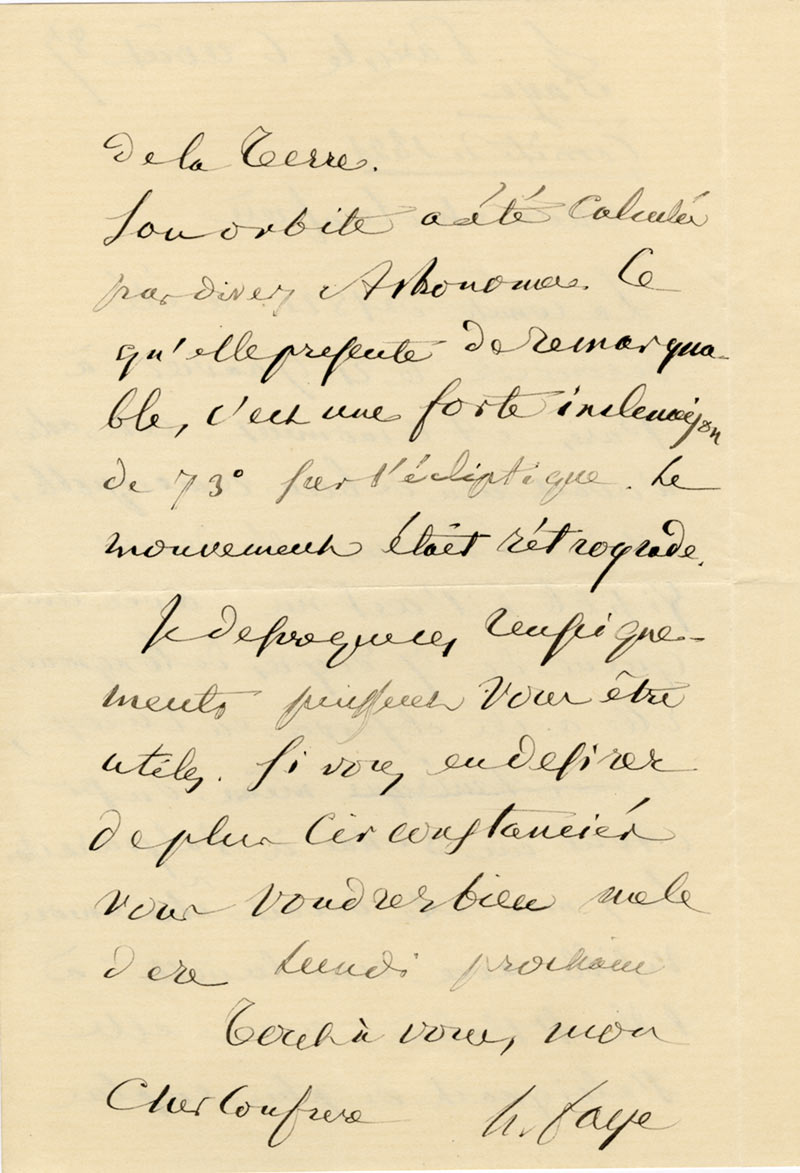 de la Terre.
Son orbite a été calculée
par divers Astronomes. Ce
qu'elle présente de remarqua-
ble, c'est une forte inclinaison
de 73° sur l'écliptique. Le
mouvement était rétrograde.
Je desire que ces renseigne-
ments puissent vous être
utiles. Si vous en desirez
de plus circonstanciés
vous voudrez bien me le
dire lundi prochain
Tout à vous, mon
Cher Confrere h. faye